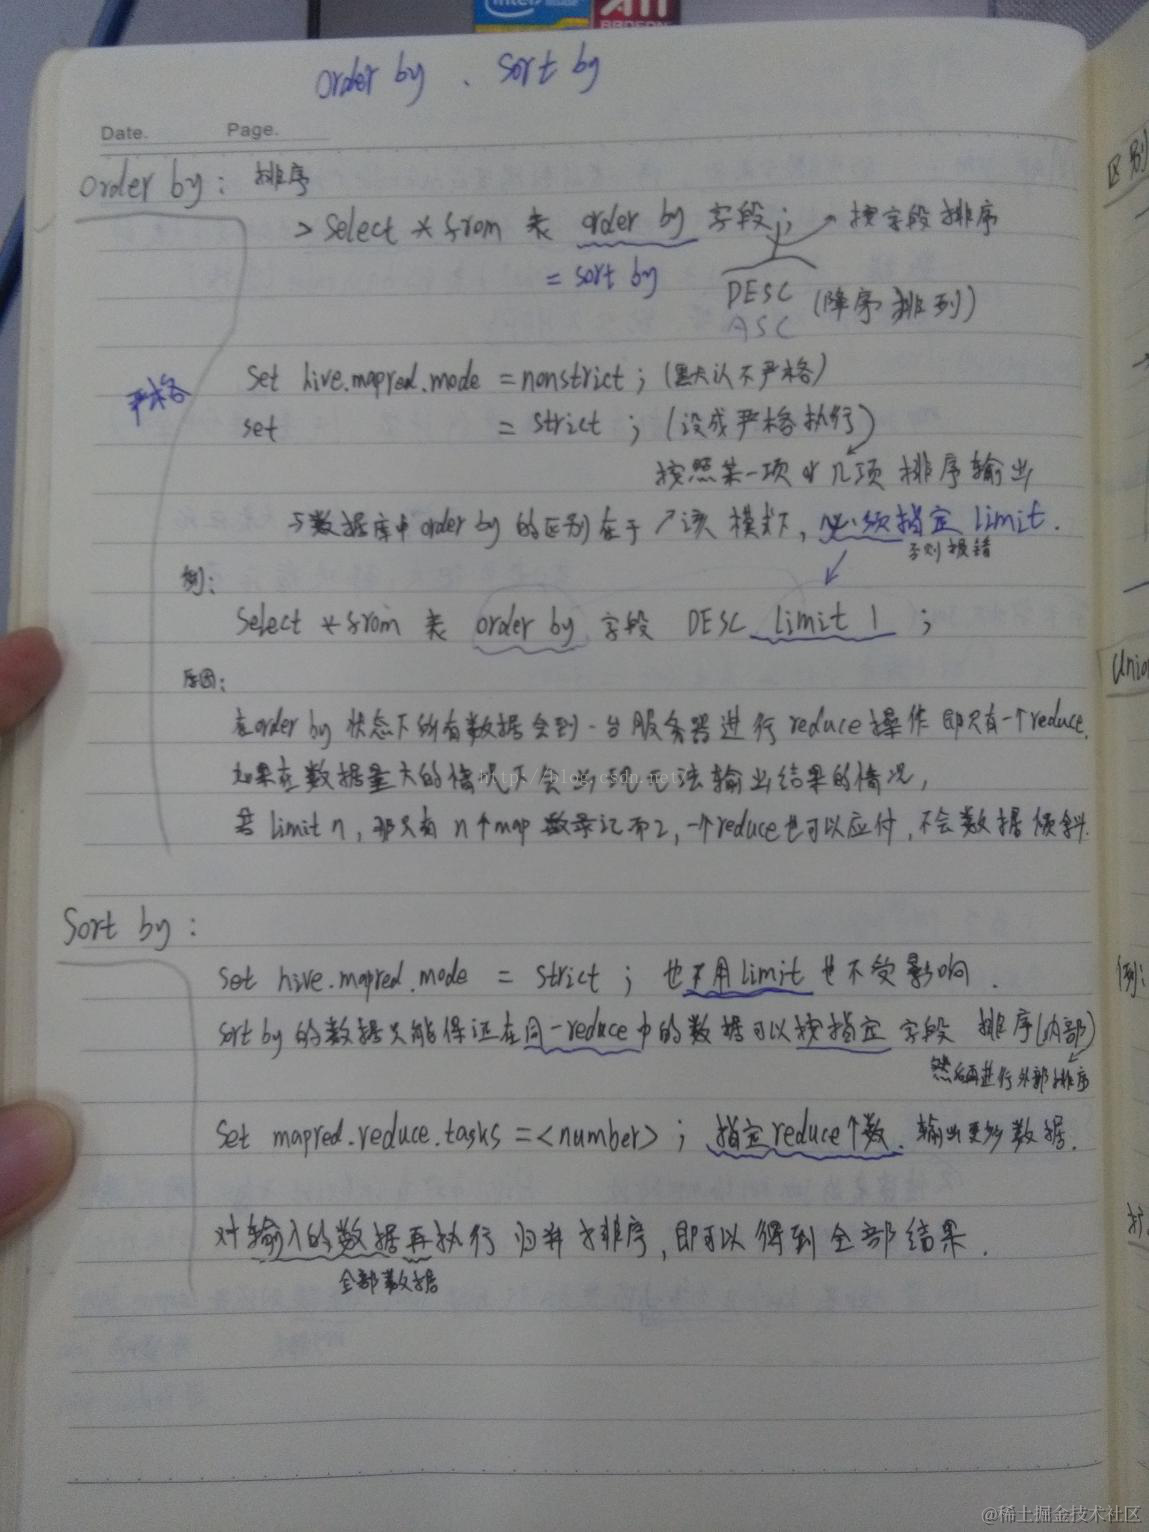 intel
RADEON
order by 、 sort by
Date. Page.
order by： 排序
> select * from 表 order by 字段； → 按字段排序
= sort by DESC (降序排列)
ASC
严格
set hive.mapred.mode = nonstrict；(默认不严格)
set = strict；(设成严格执行)
按照某一项or几项 排序输出
与数据库中 order by 的区别在于 该模式下，必须指定 limit.
否则报错
例：
select * from 表 order by 字段 DESC limit 1；
原因：
在order by 状态下所有数据会到一台服务器进行reduce操作 即只有一个reduce.
如果在数据量大的情况下会出现无法输出结果的情况，
http://blog.csdn.net
若 limit n，那只有 n个map 数录记而已，一个reduce也可以应付，不会数据倾斜.
sort by：
set hive.mapred.mode = strict；也不用limit 也不受影响.
sort by 的数据只能保证在同一reduce中的数据可以按指定字段 排序(内部)
然后再进行外部排序
set mapred.reduce.tasks=<number>；指定reduce个数. 输出更多数据.
对输入的数据再执行 归并排序，即可以得到全部结果.
全部数据
区别
Unio
例：
@稀土掘金技术社区